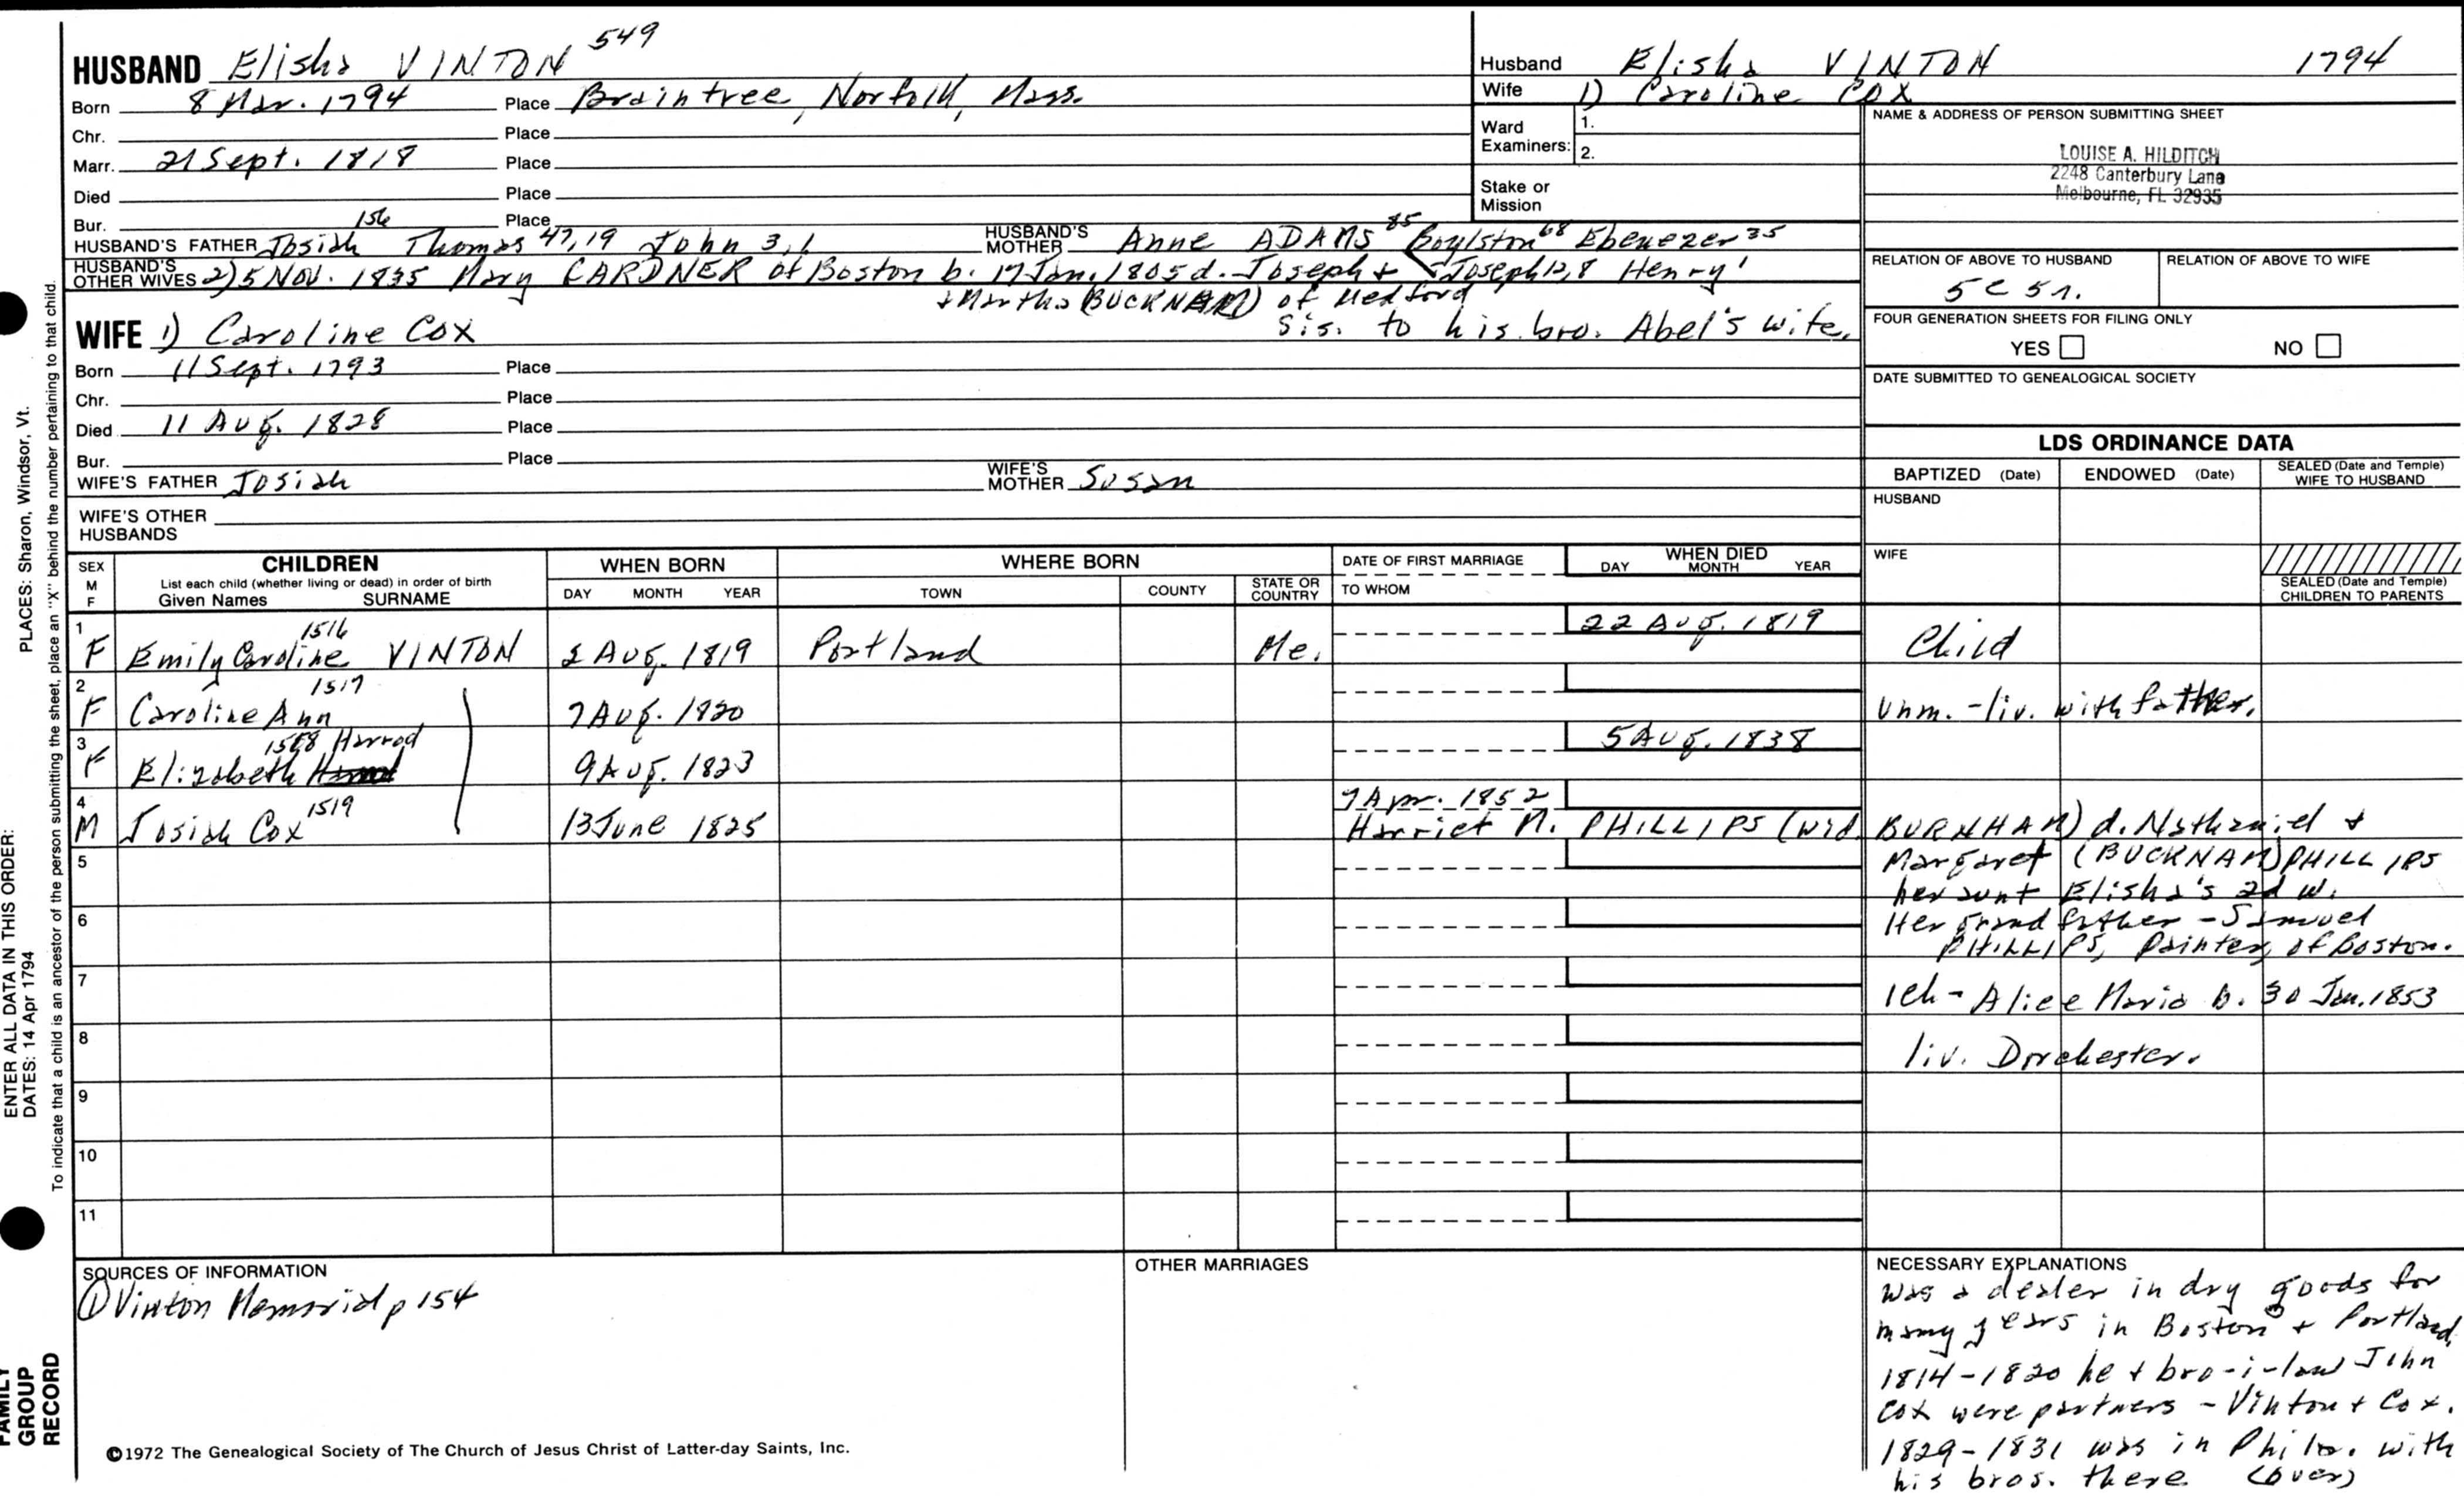 HUSBAND Elisha VINTON 549
Born 8 Mar. 1794 Place Braintree, Norfolk, Mass.
Chr. Place
Marr. 21 Sept. 1818 Place
Died Place
Bur. Place
HUSBAND'S FATHER Josiah 156 Thomas 47,19 John 3,1 HUSBAND'S MOTHER Anne ADAMS 85 Boylston 68 Ebenezer 35
HUSBAND'S OTHER WIVES 2) 5 Nov. 1835 Mary GARDNER of Boston b. 17 Jan. 1805 d. Joseph + Joseph 12,8 Henry 1
+ Martha (BUCKNAM) of Medford
Sis. to his bro. Abel's wife.
WIFE 1) Caroline Cox
Born 11 Sept. 1793 Place
Chr. Place
Died 11 Aug. 1828 Place
Bur. Place
WIFE'S FATHER Josiah WIFE'S MOTHER Susan
WIFE'S OTHER HUSBANDS
Husband Elisha VINTON 1794
Wife 1) Caroline COX
Ward Examiners: 1.
2.
Stake or Mission
NAME & ADDRESS OF PERSON SUBMITTING SHEET
LOUISE A. HILDITCH
2248 Canterbury Lane
Melbourne, FL 32935
RELATION OF ABOVE TO HUSBAND RELATION OF ABOVE TO WIFE
5c 5r.
FOUR GENERATION SHEETS FOR FILING ONLY
YES NO
DATE SUBMITTED TO GENEALOGICAL SOCIETY
LDS ORDINANCE DATA
BAPTIZED (Date) ENDOWED (Date) SEALED (Date and Temple) WIFE TO HUSBAND
HUSBAND
WIFE
SEALED (Date and Temple) CHILDREN TO PARENTS
SEX M F CHILDREN WHEN BORN WHERE BORN DATE OF FIRST MARRIAGE WHEN DIED
List each child (whether living or dead) in order of birth
Given Names SURNAME DAY MONTH YEAR TOWN COUNTY STATE OR COUNTRY TO WHOM DAY MONTH YEAR
1 F Emily Caroline 1516 VINTON 2 Aug. 1819 Portland Me. 22 Aug. 1819 Child
2 F Caroline Ann 1517 7 Aug. 1820 Unm. - liv. with father.
3 F Elizabeth 1518 Harrod 9 Aug. 1823 5 Aug. 1838
4 M Josiah Cox 1519 13 June 1825 7 Apr. 1852
Harriet M. PHILLIPS (wid. BURNHAM) d. Nathaniel +
5 Margaret (BUCKNAM) PHILLIPS
her aunt Elisha's 2d w.
6 Her grandfather - Samuel
PHILLIPS, Painter, of Boston.
7 1ch - Alice Maria b. 30 Jan. 1853
8 liv. Dorchester.
9
10
11
SOURCES OF INFORMATION
① Vinton Memorial p 154
OTHER MARRIAGES
NECESSARY EXPLANATIONS
was a dealer in dry goods for
many years in Boston + Portland,
1814-1820 he + bro-i-law John
Cox were partners - Vinton + Cox.
1829-1831 was in Phila. with
his bros. there (over)
©1972 The Genealogical Society of The Church of Jesus Christ of Latter-day Saints, Inc.
PLACES: Sharon, Windsor, Vt.
To indicate that a child is an ancestor of the person submitting the sheet, place an "X" behind the number pertaining to that child.
ENTER ALL DATA IN THIS ORDER:
DATES: 14 Apr 1794
FAMILY
GROUP
RECORD